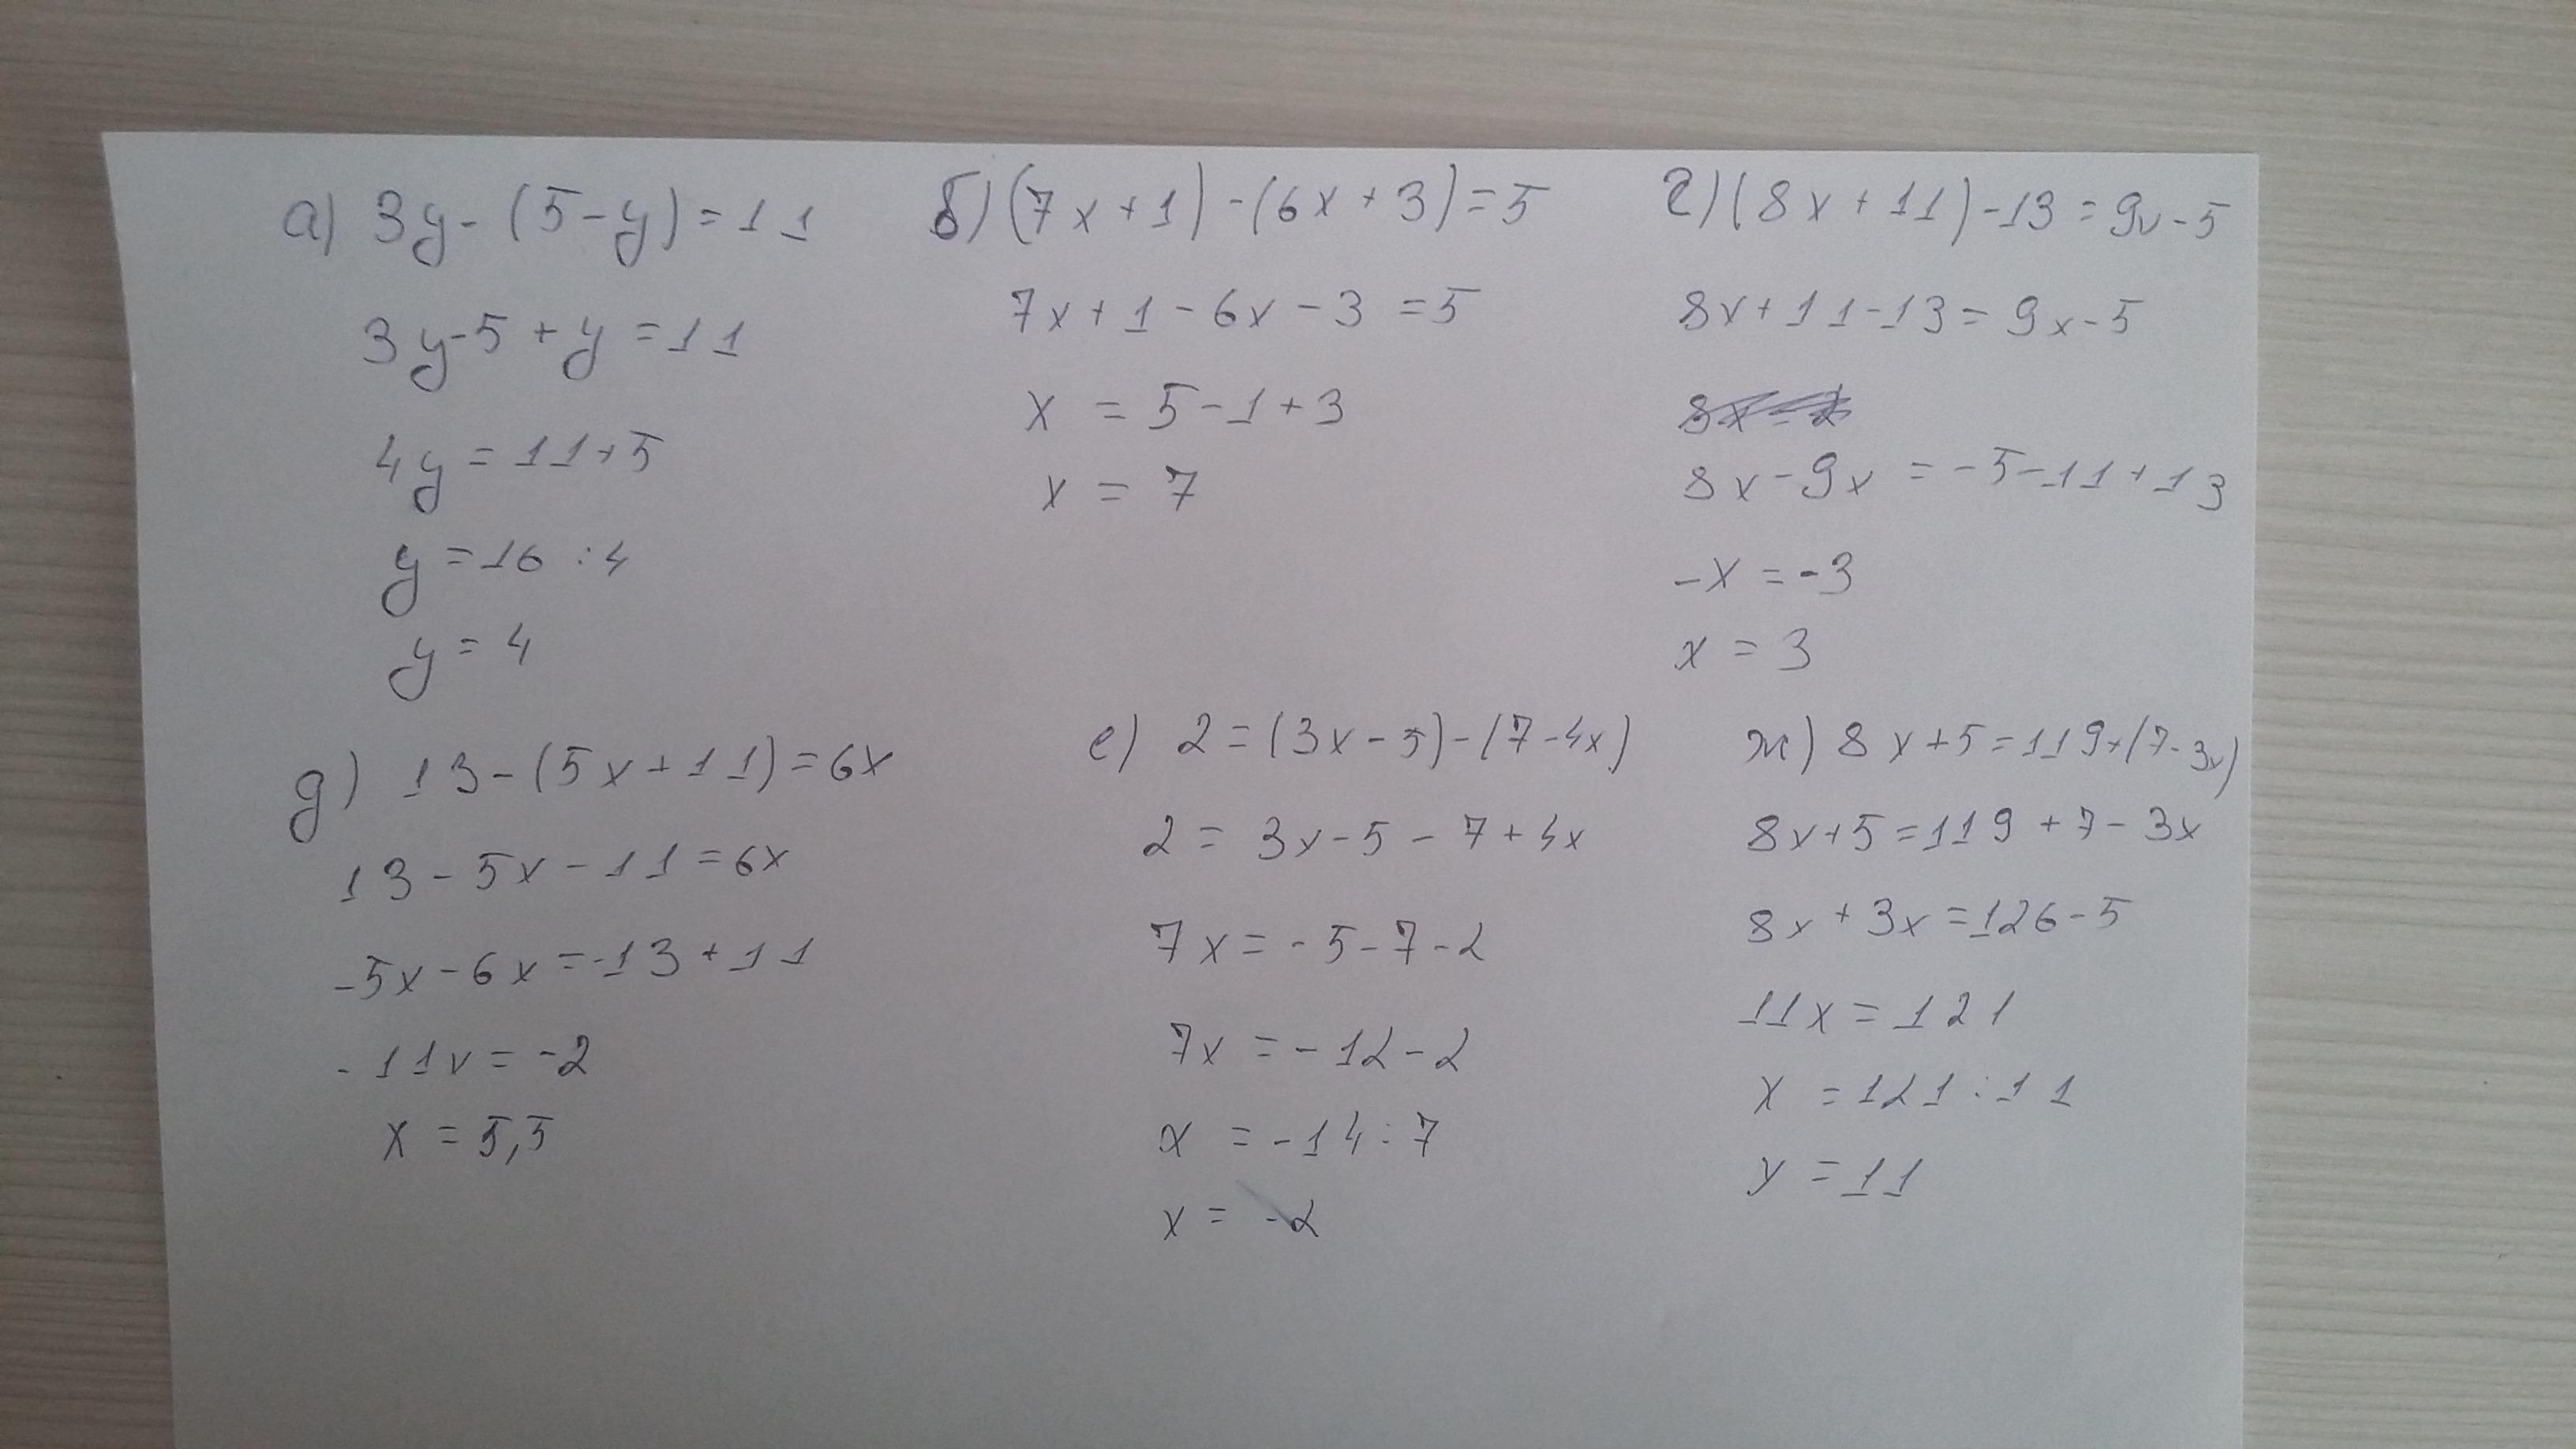 а) 3y - (5 - y) = 11
3y - 5 + y = 11
4y = 11 + 5
y = 16 : 4
y = 4
б) (7x + 1) - (6x + 3) = 5
7x + 1 - 6x - 3 = 5
x = 5 - 1 + 3
x = 7
г) (8x + 11) - 13 = 9x - 5
8x + 11 - 13 = 9x - 5
8x - 9x = -5 - 11 + 13
-x = -3
x = 3
g) 13 - (5x + 11) = 6x
13 - 5x - 11 = 6x
-5x - 6x = -13 + 11
-11x = -2
x = 5,5
е) 2 = (3x - 5) - (7 - 4x)
2 = 3x - 5 - 7 + 4x
7x = -5 - 7 - 2
7x = -12 - 2
x = -14 : 7
x = -2
ж) 8x + 5 = 119 + (7 - 3x)
8x + 5 = 119 + 7 - 3x
8x + 3x = 126 - 5
11x = 121
x = 121 : 11
y = 11